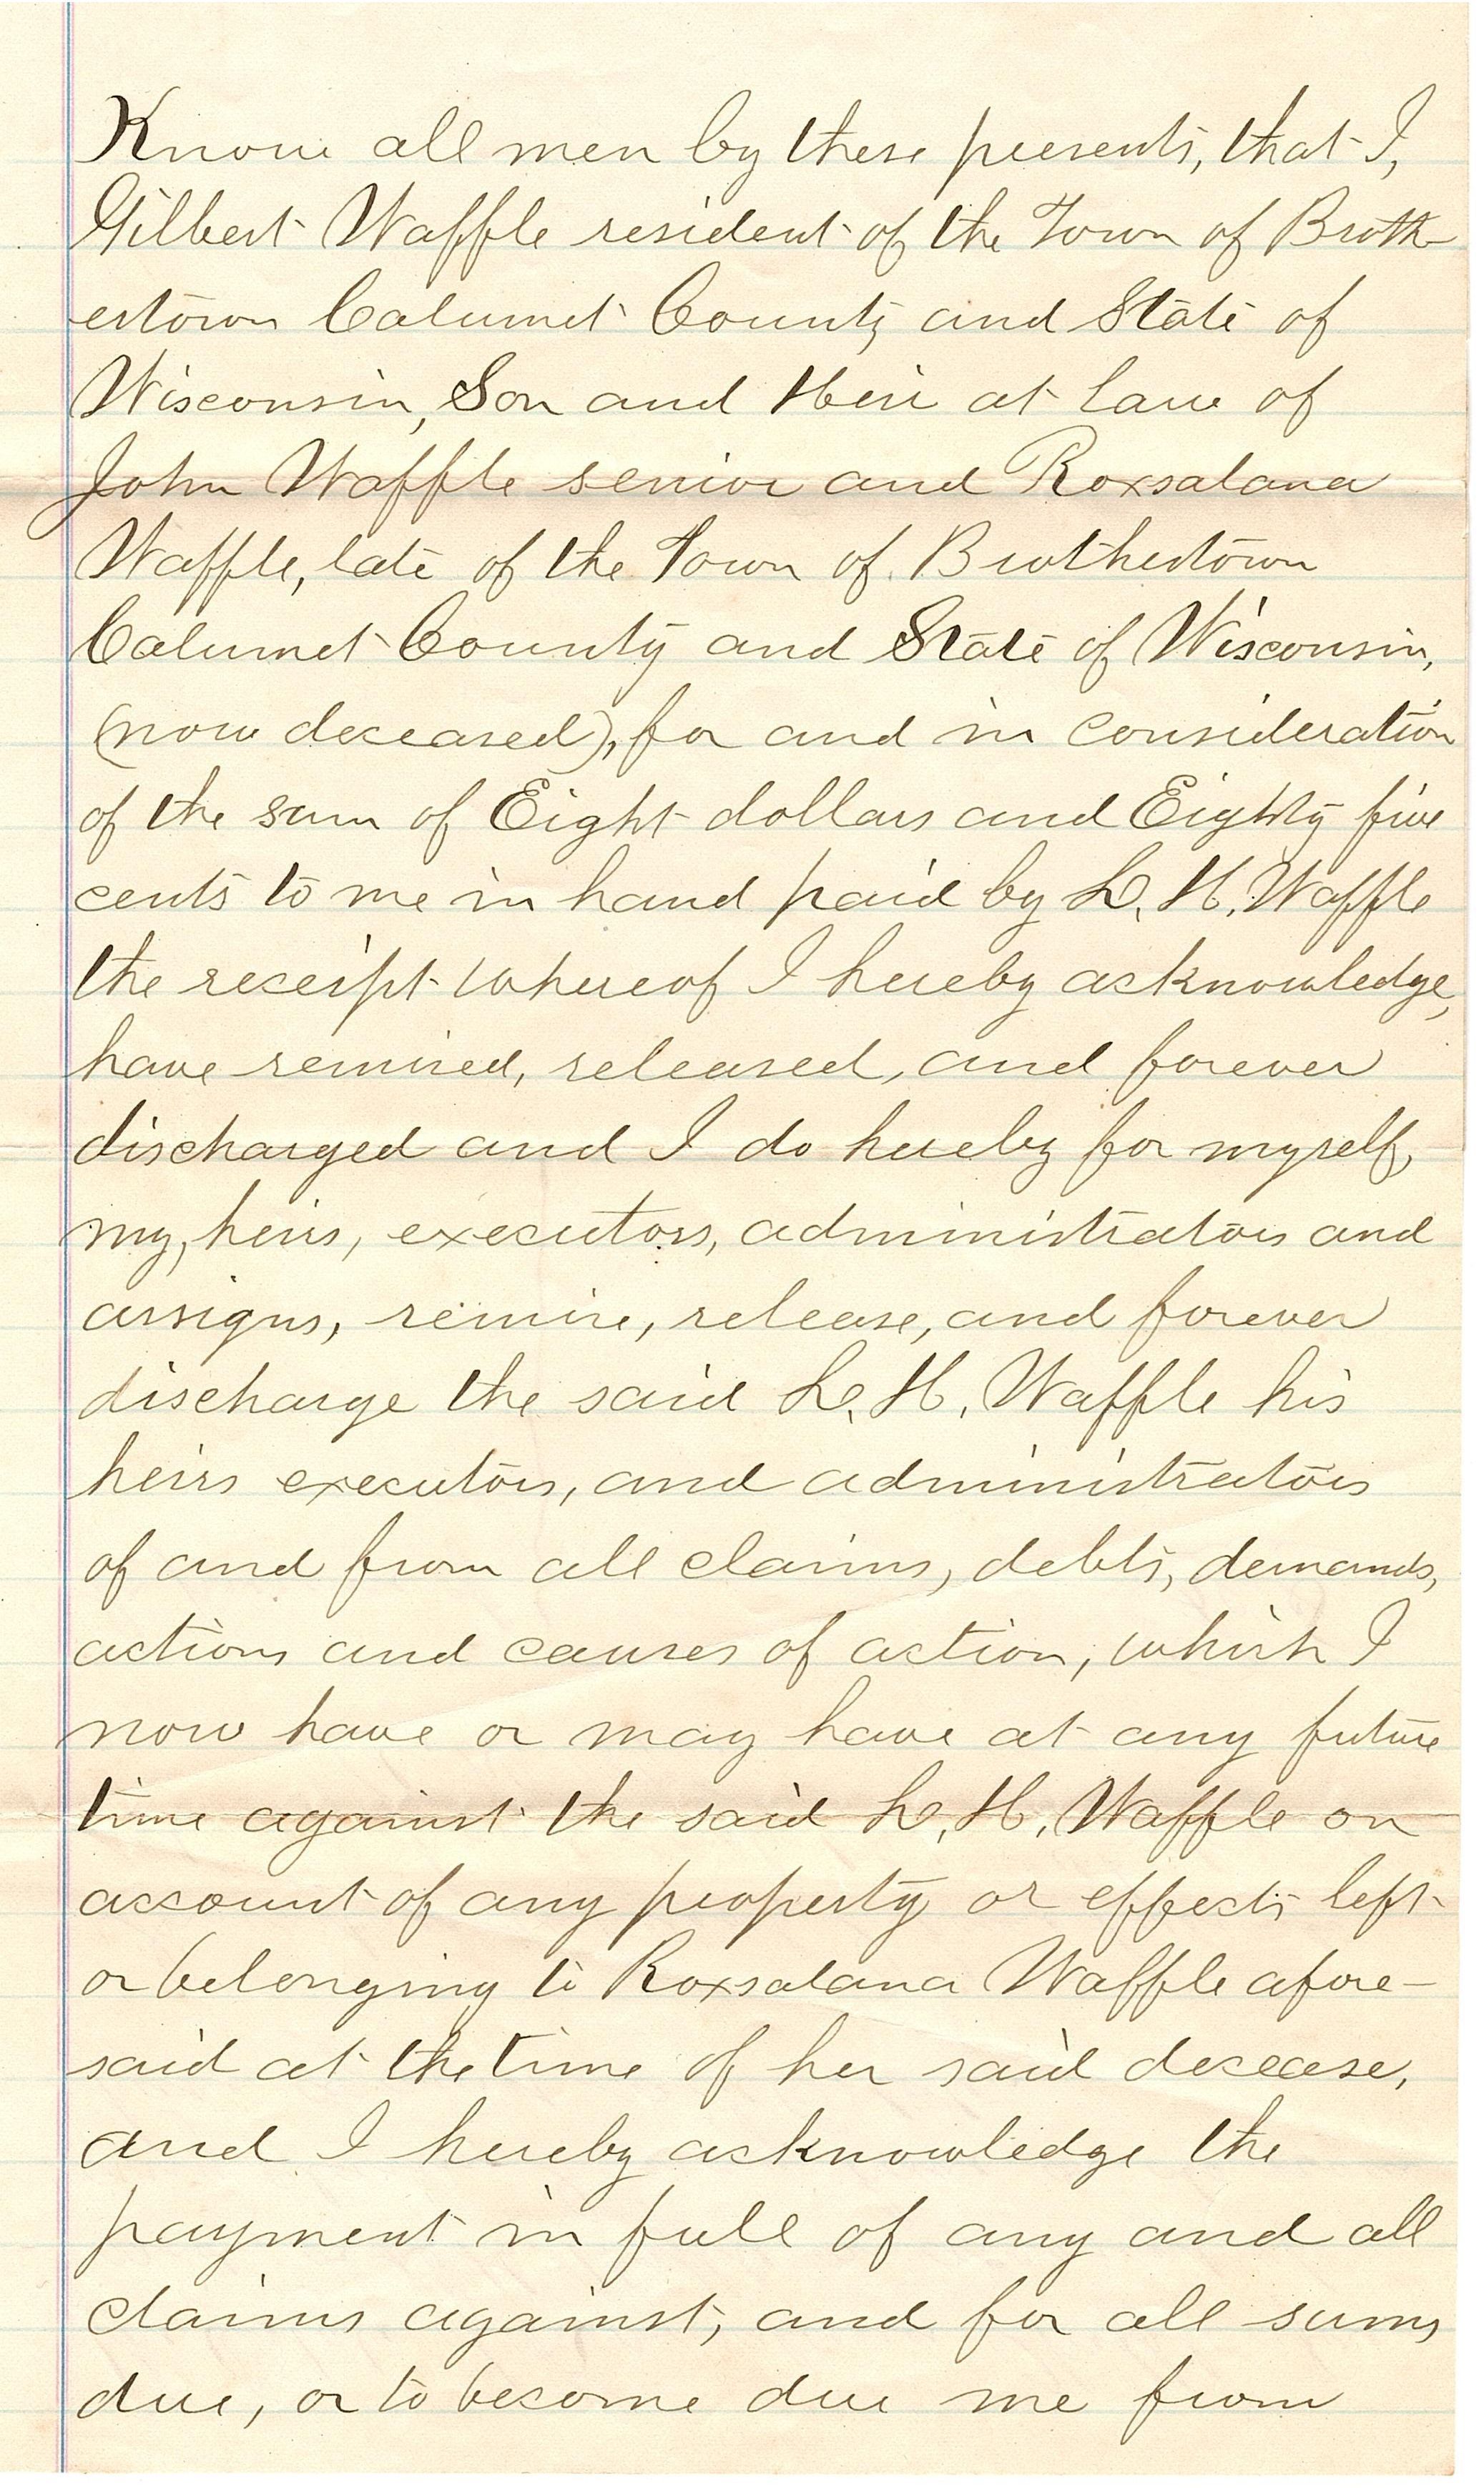 Know all men by these presents, that I,
Gilbert Waffle resident of the Town of Broth-
ertown Calumet County and State of
Wisconsin, Son and Heir at law of
John Waffle senior and Roxsalana
Waffle, late of the Town of Brothertown
Calumet County and State of Wisconsin,
(now deceased), for and in consideration
of the sum of Eight dollars and Eighty five
cents to me in hand paid by L. H. Waffle
the receipt whereof I hereby acknowledge,
have remised, released, and forever
discharged and I do hereby for myself,
my, heirs, executors, administrators and
assigns, remise, release, and forever
discharge the said L. H. Waffle his
heirs executors, and administrators
of and from all claims, debts, demands,
actions and causes of action, which I
now have or may have at any future
time against the said L. H. Waffle on
account of any property or effects left
or belonging to Roxsalana Waffle afore-
said at the time of her said decease,
and I hereby acknowledge the
payment in full of any and all
claims against, and for all sums
due, or to become due me from